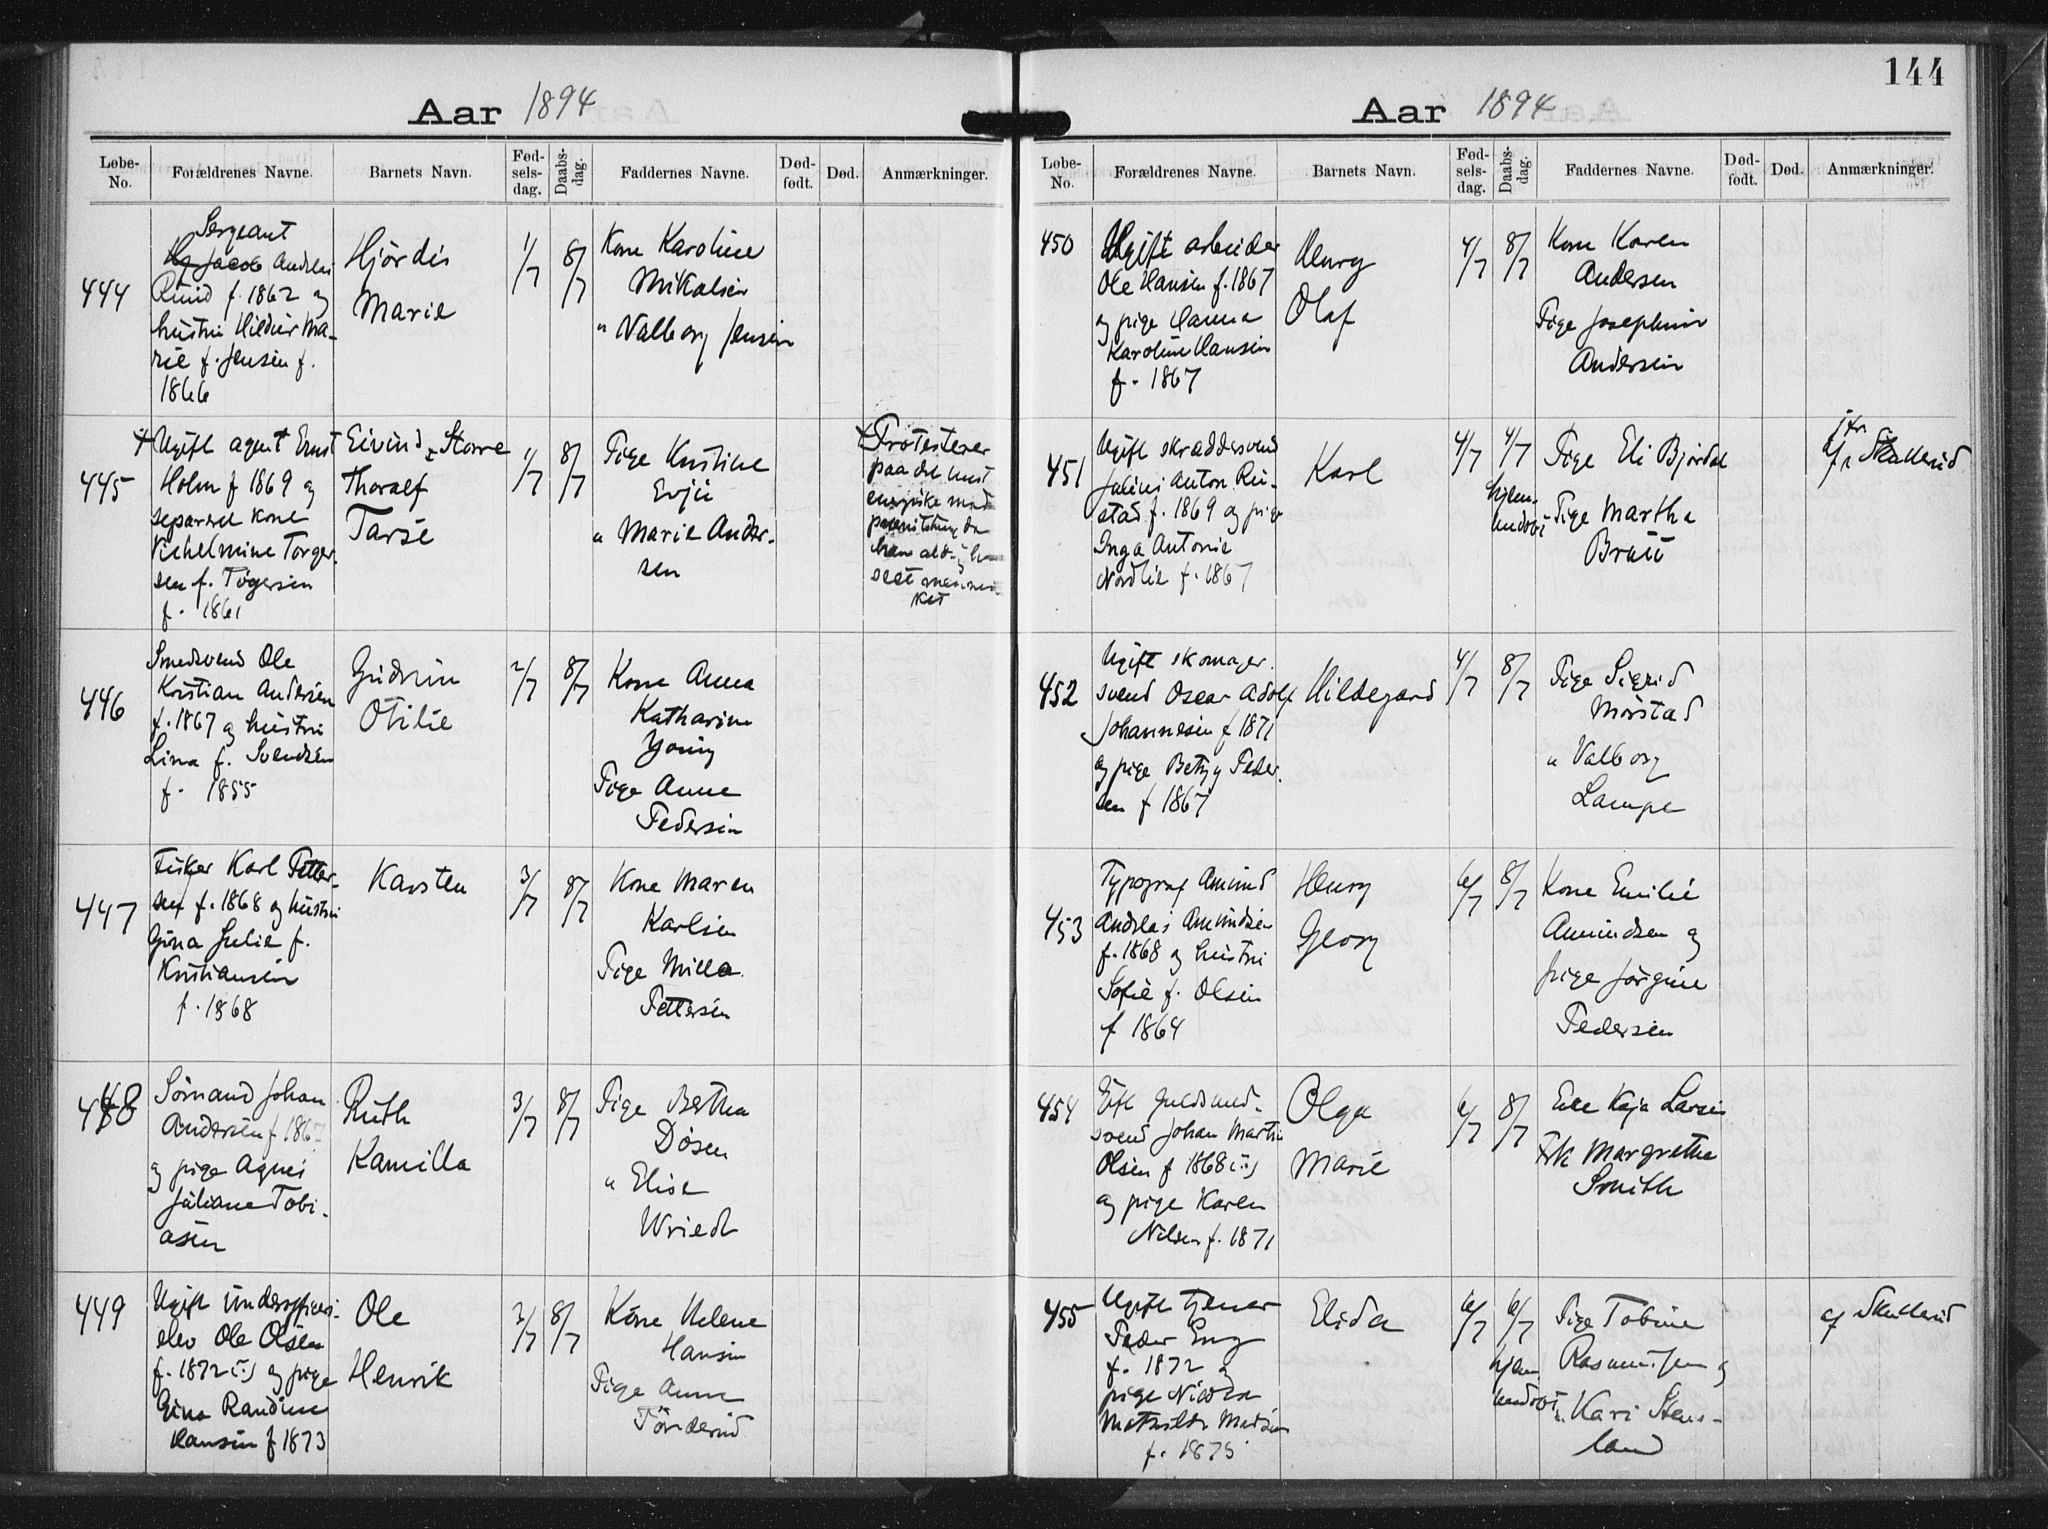 144
Aar 1894
Løbe-No. Forældrenes Navne. Barnets Navn. Fød-sels-dag. Daabs-dag. Faddernes Navne. Død-født. Død. Anmærkninger.
444
Sergeant
Jacob Andreas
Ruud f. 1862 og
hustru Hildur Ma-
rie f. Jensen f.
1866
Hjördis
Marie
1/7
8/7
Kone Karoline
Mikalsen
" Valborg Jensen
445
+ Ugift agent Ernst
Holm f 1869 og
separeret kone
Vilhelmine Torger-
sen f. Tögersen
f. 1861
Eivind Storre
Thoralf
Tarje
1/7
8/7
Pige Kristine
Evju
" Marie Ander-
sen
+ Protesterer
paa det mest
energiske mod
446
Smedsvend Ole
Kristian Andersen
f. 1867 og hustru
Lina f. Svendsen
f. 1855
Gudrun
Otilie
2/7
8/7
Kone Anna
Katharine
Young
Pige Anne
Pedersen
447
Fisker Karl Petter-
sen f. 1868 og hustru
Gina Julie f.
Kristiansen
f. 1868
Karsten
3/7
8/7
Kone Maren
Karlsen
Pige Milla
Pettersen
448
Sömand Johan
Andersen f 186
og pige Agnes
Juliane Tobi-
asen
Ruth
Kamilla
3/7
8/7
Pige Bertha
Døsen
" Elise
Wriedt
449
Ugift underofficers-
elev Ole Olsen
f. 1872 (:) og pige
Gina Randine
Hansen f 1873
Ole
Henrik
3/7
8/7
Kone Helene
Hansen
Pige Anna
Tönderud
Aar 1894
Løbe-No. Forældrenes Navne. Barnets Navn. Fød-sels-dag. Daabs-dag. Faddernes Navne. Død-født. Død. Anmærkninger.
450
Ugift arbeider
Ole Hansen f. 1867
og pige Hanna
Karoline Hansen
f. 1867
Henry
Olaf
4/7
8/7
Kone Karen
Andersen
Pige Josephine
Andersen
451
Ugift skræddersvend
Julius Anton Ru-
stad f. 1869 og pige
Inga Antonie
Nordlie f. 1867
Karl
4/7
4/7
hjem-
medöbt
Pige Eli Bjørdal
Pige Martha
Bruu
jfr
af Skullerud
452
Ugift skomager-
svend Oscar Adolf
Johannesen f 1871
og pige Betzy Peder-
sen f 1867
Hildegard
4/7
8/7
Pige Sigrid
Mörstad
" Valborg
Lampe
453
Typograf Amund
Andreas Amundsen
f. 1868 og hustru
Sofie f. Olsen
f 1864
Henry
Georg
6/7
8/7
Kone Emilie
Amundsen og
pige Jörgine
Pedersen
454
Gift Guldsmed-
svend Johan Martin
Olsen f 1868 (:)
og pige Karen
Nilsen f. 1871
Olga
Marie
6/7
8/7
Enke Kaja Larsen
Frk Margrethe
Smith
455
Ugift tjener
Peder Eng
f. 1872 og
pige Nicoda
Mathilde Madsen
f. 1875
Elida
6/7
6/7
hjem
medöbt
Pige Tobine
Rasmussen og
" Kari Stens-
land
af Skullerud